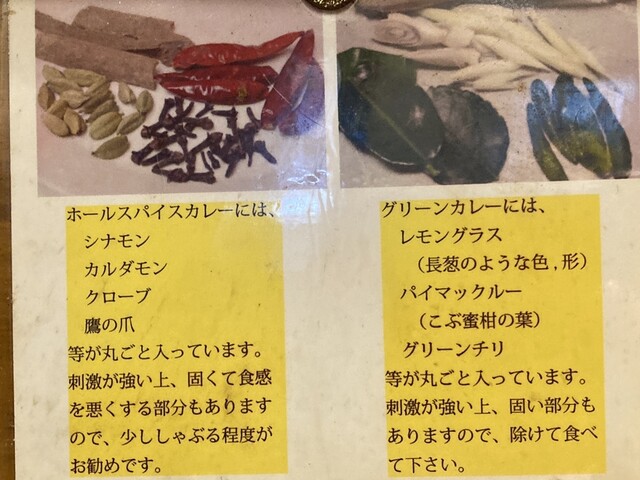 ホールスパイスカレーには、
シナモン
カルダモン
クローブ
鷹の爪
等が丸ごと入っています。
刺激が強い上、固くて食感
を悪くする部分もあります
ので、少ししゃぶる程度が
お勧めです。
グリーンカレーには、
レモングラス
（長葱のような色,形）
パイマックルー
（こぶ蜜柑の葉）
グリーンチリ
等が丸ごと入っています。
刺激が強い上、固い部分も
ありますので、除けて食べ
て下さい。